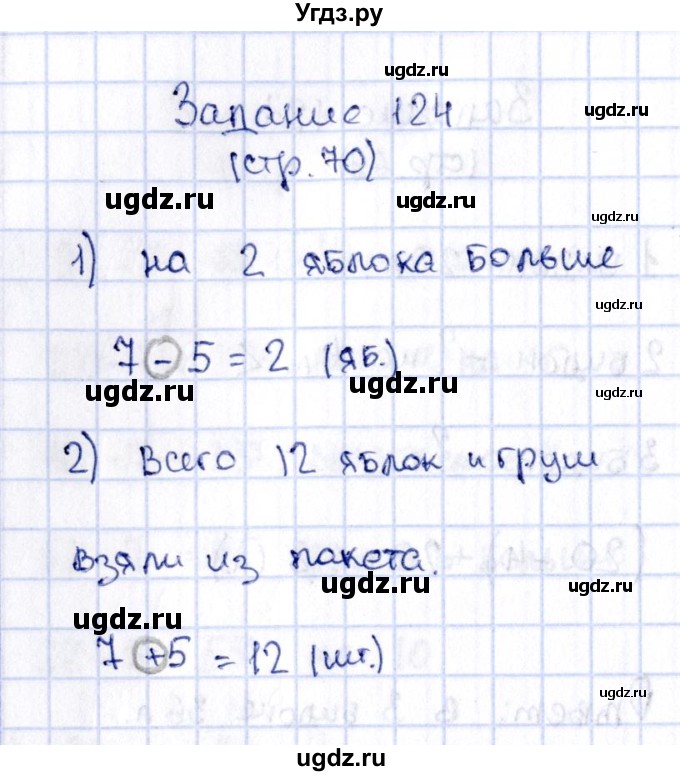 Угдз.ру
ugdz.ru
Задание 124
ugdz.ru
(стр. 70)
ugdz.ru ugdz.ru
ugdz.ru
1) на 2 яблока больше
ugdz.ru
7 - 5 = 2 (яб.)
ugdz.ru ugdz.ru ugdz.ru
2) Всего 12 яблок и груш
ugdz.ru
взяли из пакета.
ugdz.ru ugdz.ru
ugdz.ru
7 + 5 = 12 (шт.)
ugdz.ru
ugdz.ru